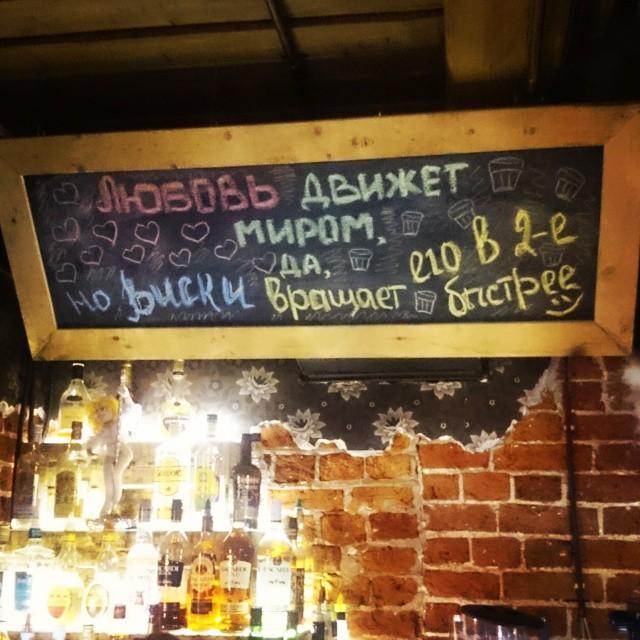 ЛЮБОВЬ ДВИЖЕТ
МИРОМ.
ДА,
Но Виски вращает его в 2-е быстрее